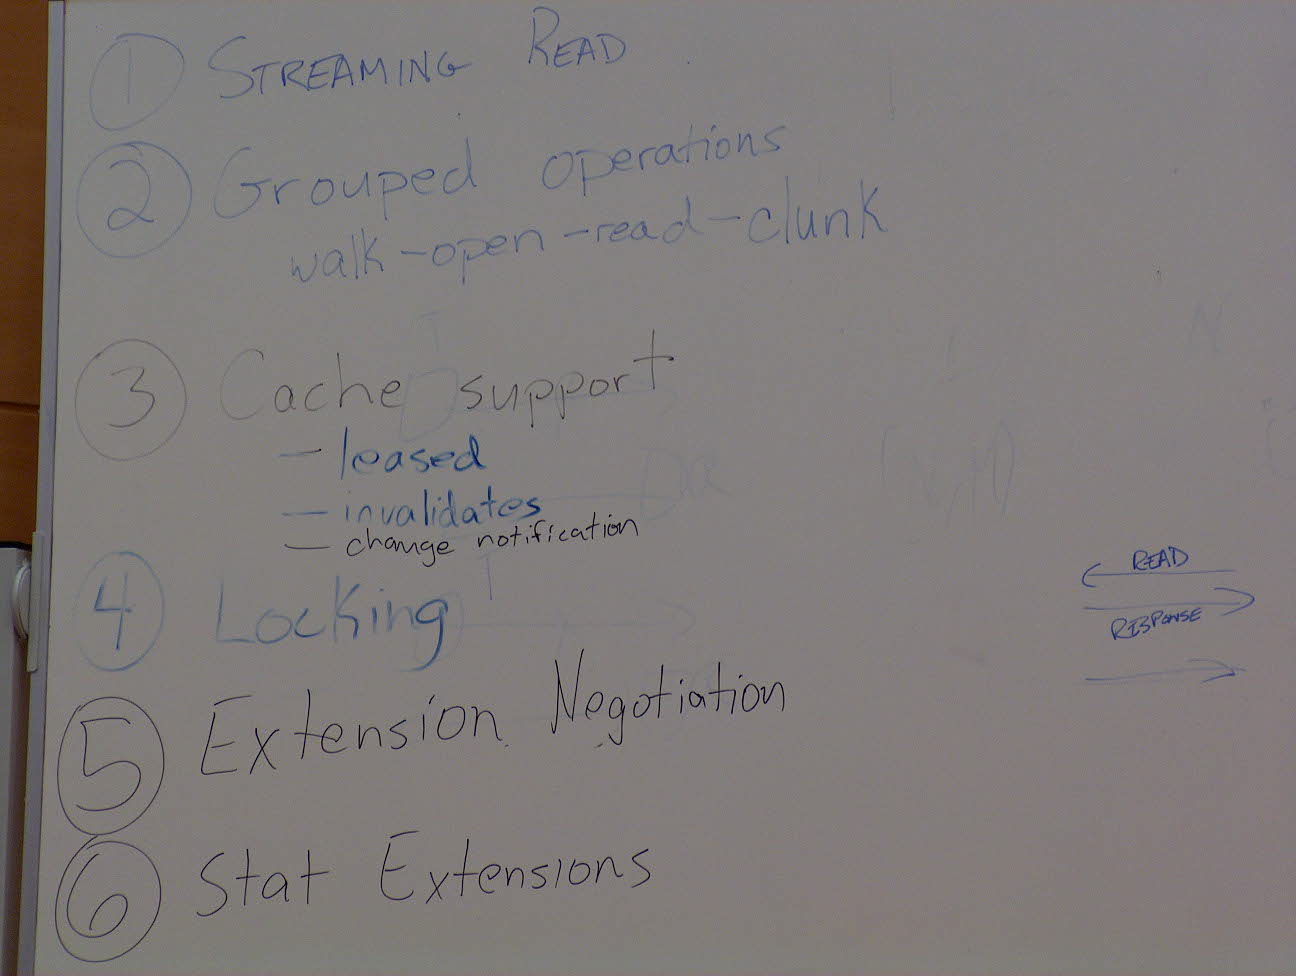 1 STREAMING READ
2 Grouped operations
walk-open-read-clunk
3 Cache support
— leased
— invalidates
— change notification
4 Locking
READ
RESPONSE
5 Extension Negotiation
6 Stat Extensions